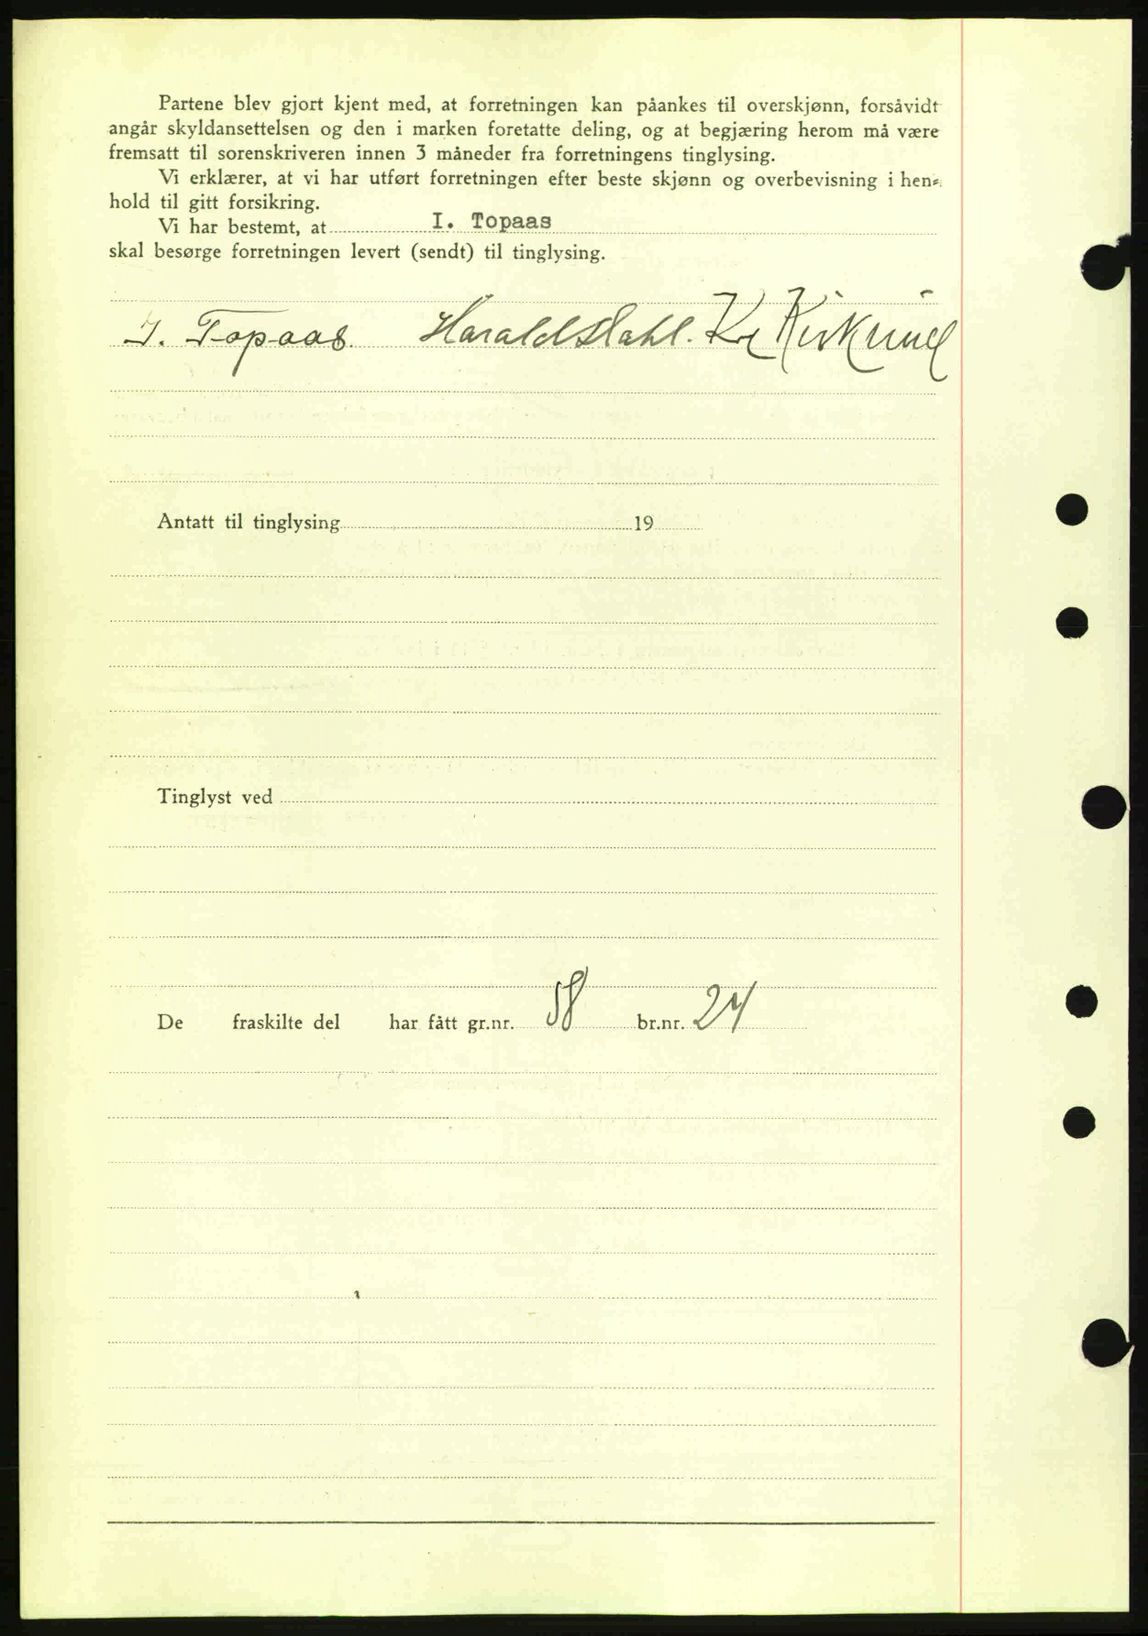 Partene blev gjort kjent med, at forretningen kan påankes til overskjønn, forsåvidt
angår skyldansettelsen og den i marken foretatte deling, og at begjæring herom må være
fremsatt til sorenskriveren innen 3 måneder fra forretningens tinglysing.
Vi erklærer, at vi har utført forretningen efter beste skjønn og overbevisning i hen-
hold til gitt forsikring.
Vi har bestemt, at I. Topaas
skal besørge forretningen levert (sendt) til tinglysing.
I. Topaas. Harald Stahl. Kr
Antatt til tinglysing 19
Tinglyst ved
De fraskilte del har fått gr.nr. 58 br.nr. 24